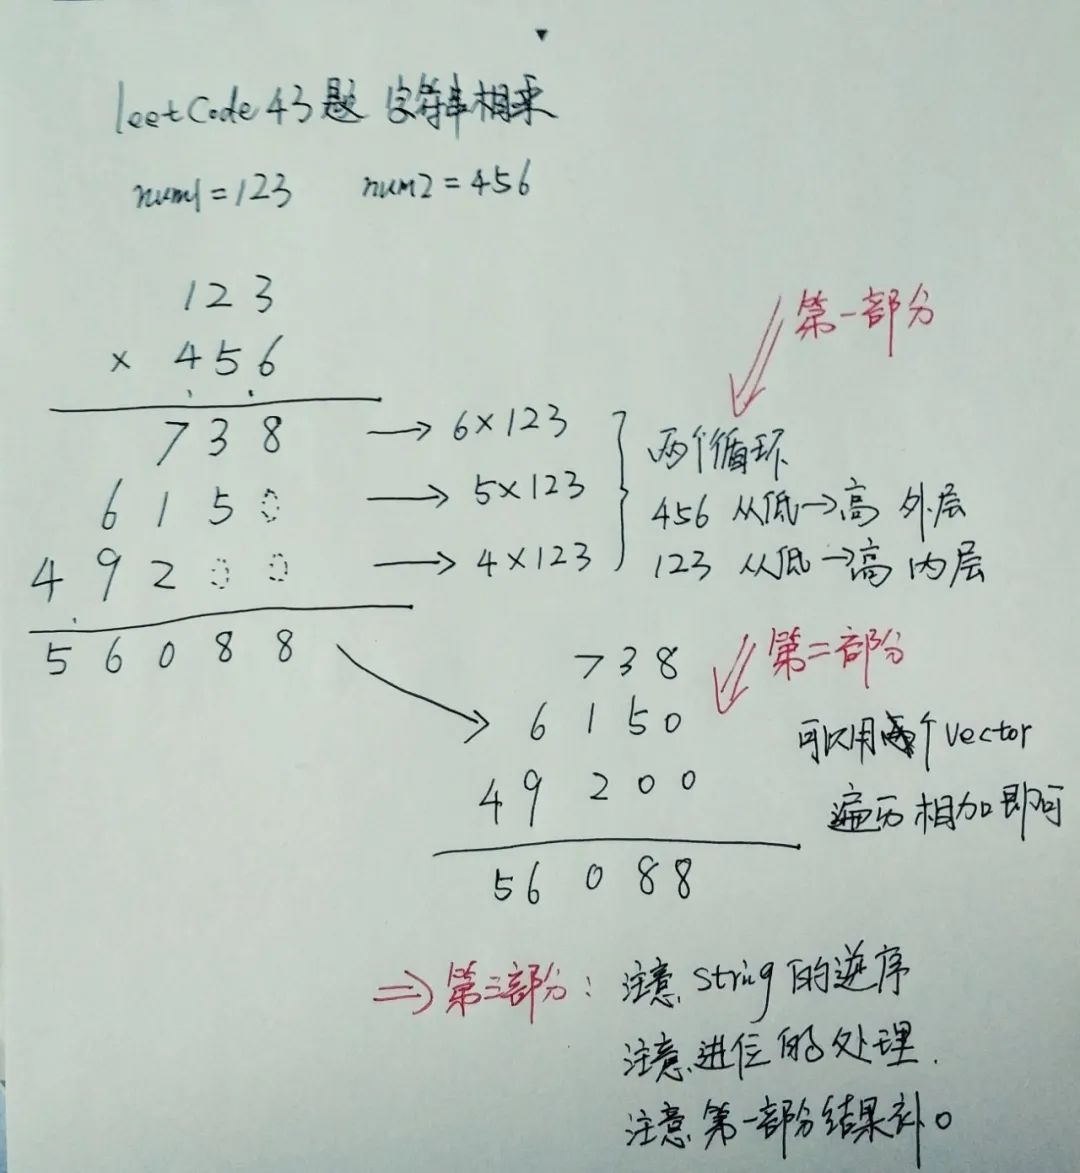 leetCode 43题 字符串相乘
num1=123 num2=456
123
× 456
738 → 6×123
6150 → 5×123
49200 → 4×123
56088
第一部分
两个循环
456 从低→高 外层
123 从低→高 内层
第二部分
738
6150
49200
56088
可以用 个vector
遍历相加即可
⇒ 第三部分: 注意string的逆序
注意进位的处理.
注意第一部分结果补0